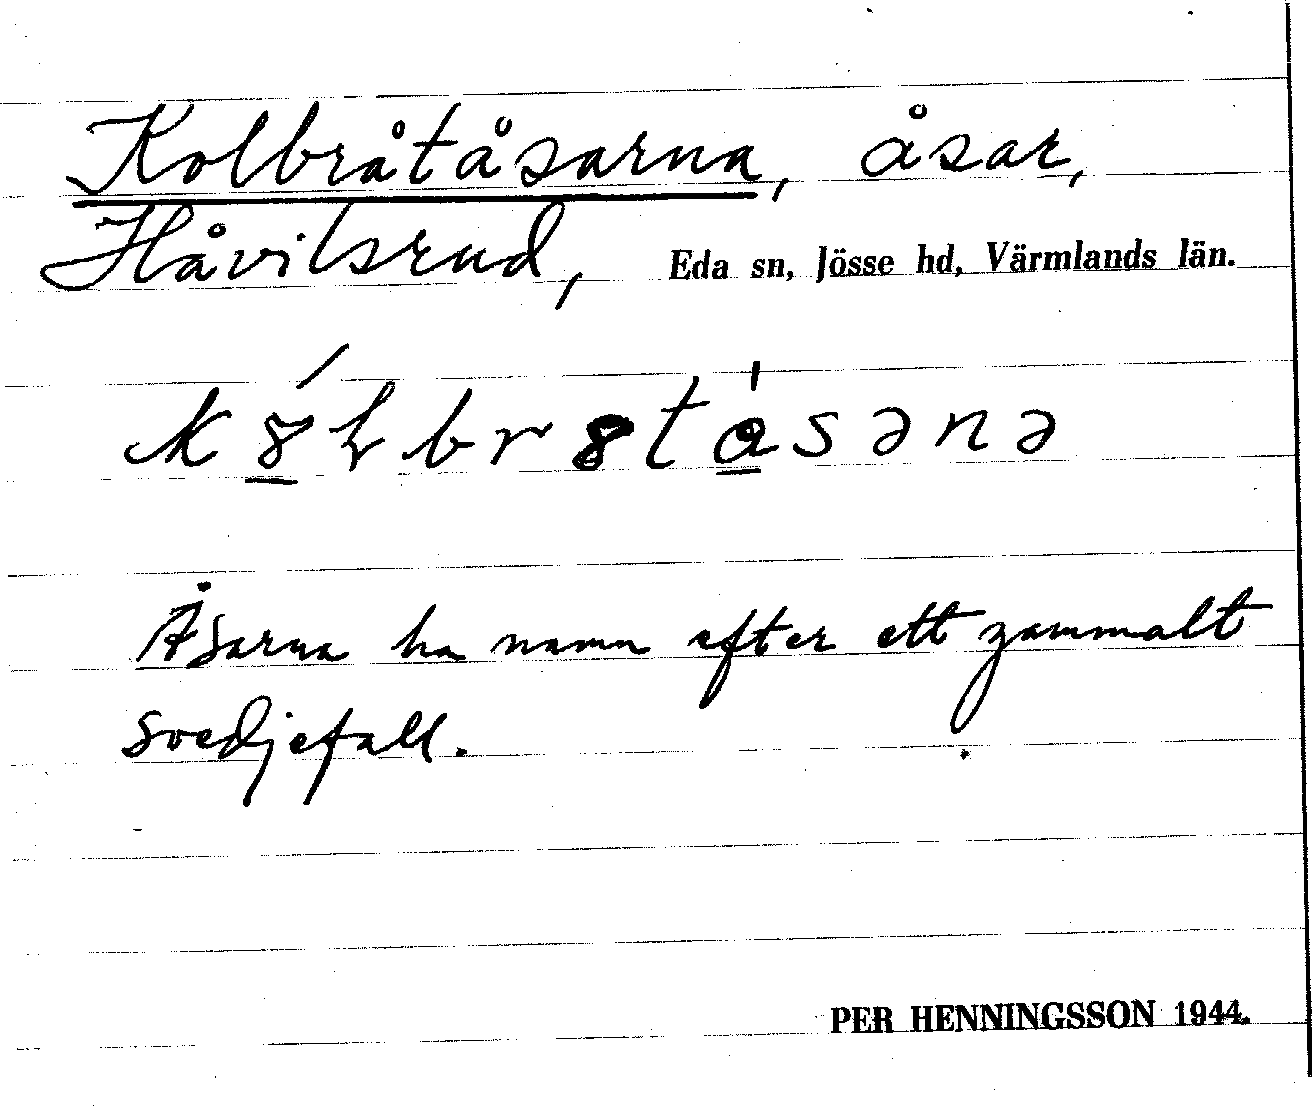 Kolbråtåsarna, åsar,
Håvilsrud, Eda sn, Jösse hd, Värmlands län.
Åsarna ha namn efter ett gammalt
svedjefall.
PER HENNINGSSON 1944.